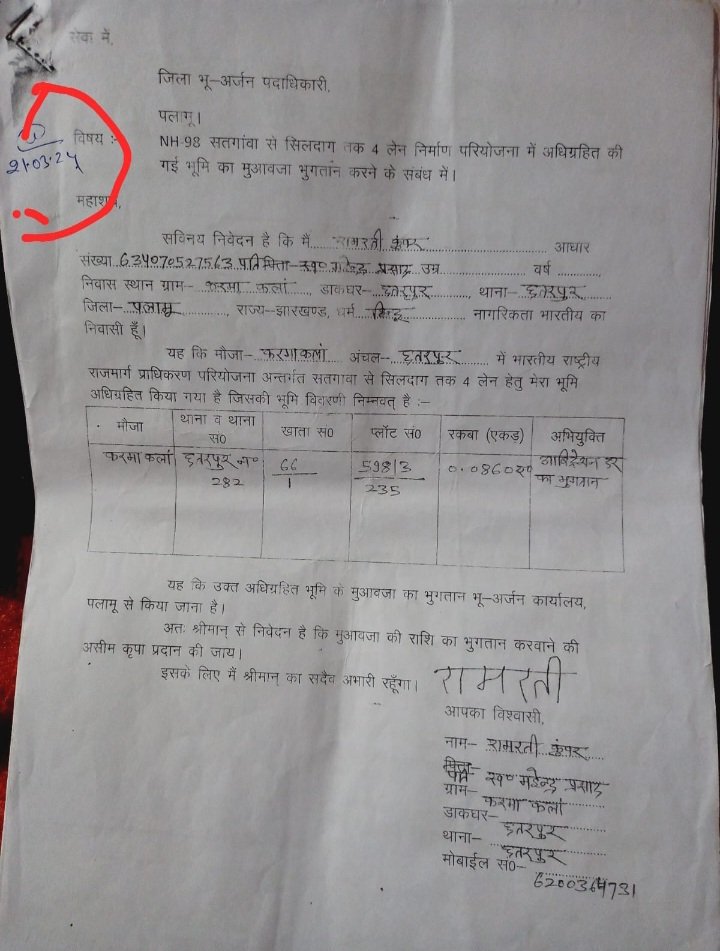 सेवा में,
जिला भू–अर्जन पदाधिकारी,
पलामू।
21.03.24
विषय :-
NH-98 सतगांवा से सिलदाग तक 4 लेन निर्माण परियोजना में अधिग्रहित की
गई भूमि का मुआवजा भुगतान करने के संबंध में।
महाशय,
सविनय निवेदन है कि मैं रामरती कुंवर आधार
संख्या 634070527563 पति/पिता– स्व० प्रसाद उम्र वर्ष
निवास स्थान ग्राम– करमा कलां, डाकघर– छतरपुर, थाना– छतरपुर
जिला– पलामू, राज्य–झारखण्ड, धर्म हिन्दू नागरिकता भारतीय का
निवासी हूँ।
यह कि मौजा– करमा कलां अंचल– छतरपुर में भारतीय राष्ट्रीय
राजमार्ग प्राधिकरण परियोजना अन्तर्गत सतगावा से सिलदाग तक 4 लेन हेतु मेरा भूमि
अधिग्रहित किया गया है जिसकी भूमि विवरणी निम्नवत् है :–
मौजा थाना व थाना सं0 खाता सं0 प्लॉट सं0 रकबा (एकड़) अभियुक्ति
करमा कलां छतरपुर न० 282 66/1 598/3 235 0.0860 ए० आर्बिट्रेशन दर का भुगतान
यह कि उक्त अधिग्रहित भूमि के मुआवजा का भुगतान भू–अर्जन कार्यालय,
पलामू से किया जाना है।
अतः श्रीमान् से निवेदन है कि मुआवजा की राशि का भुगतान करवाने की
असीम कृपा प्रदान की जाय।
इसके लिए मैं श्रीमान् का सदैव अभारी रहूँगा।
रामरती
आपका विश्वासी,
नाम– रामरती कुंवर
पति स्व० प्रसाद
ग्राम– करमा कलां
डाकघर– छतरपुर
थाना– छतरपुर
मोबाईल सं0–
6200364731